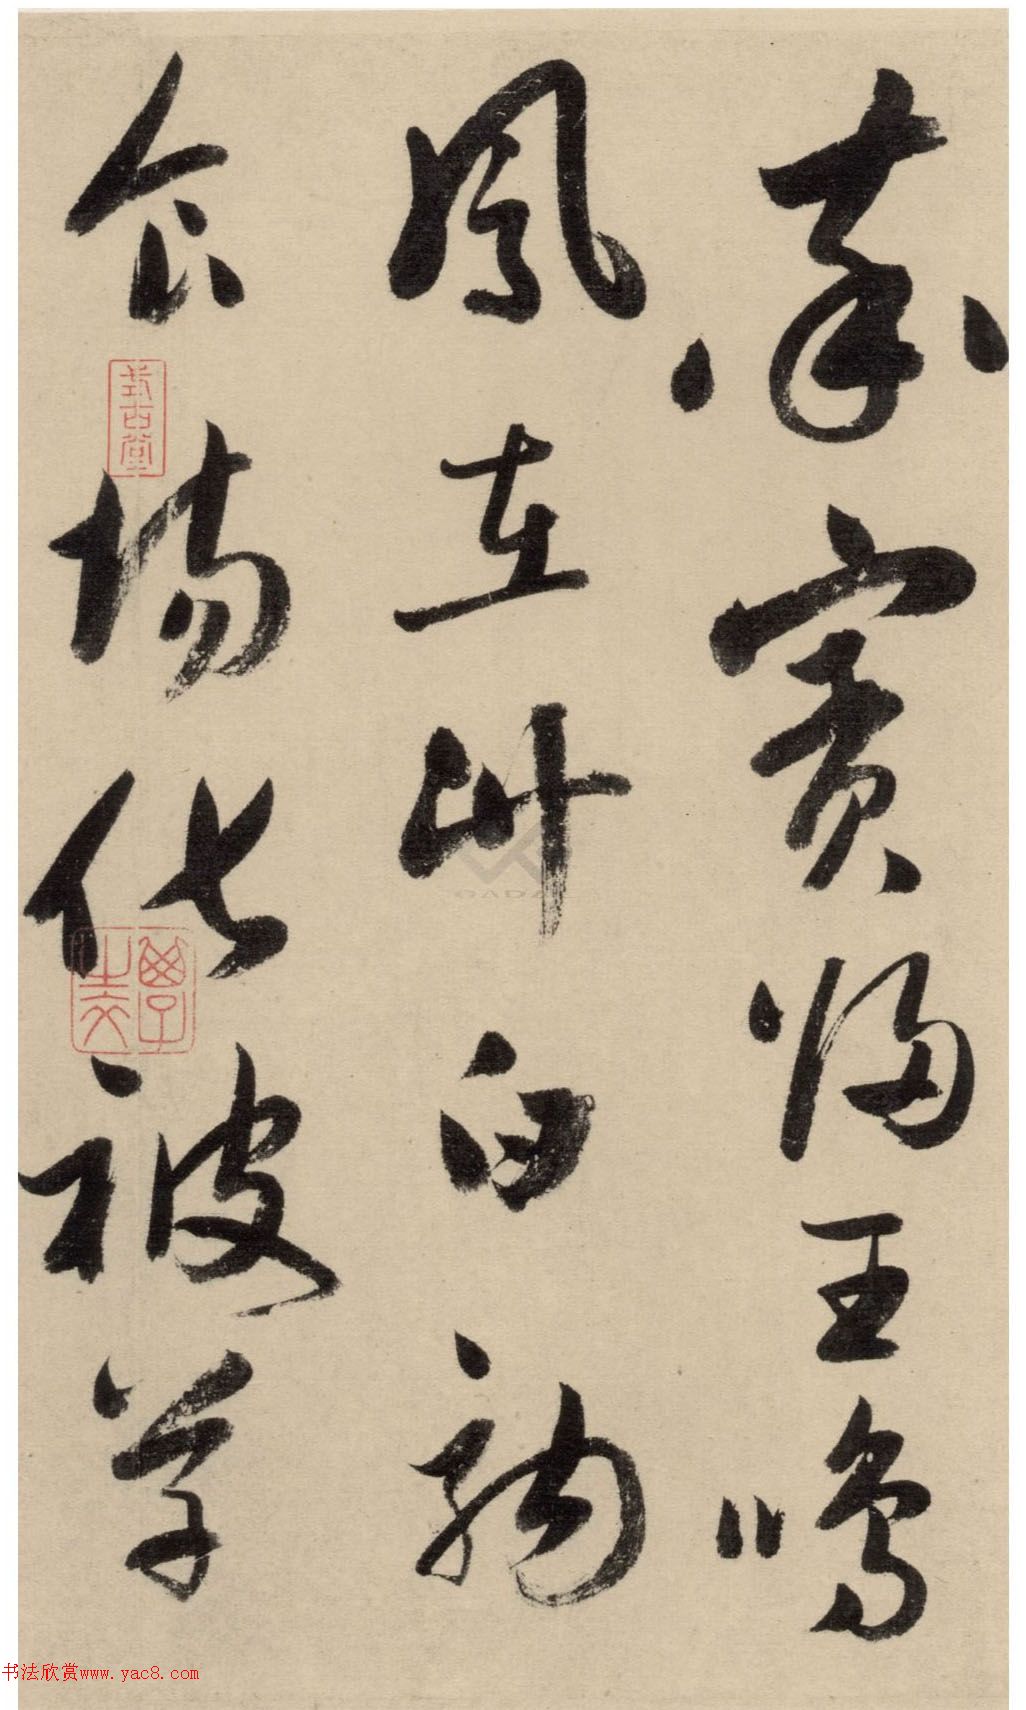 率賓歸王鳴
鳳在竹白駒
食場化被草
式古堂
书法欣赏www.yac8.com